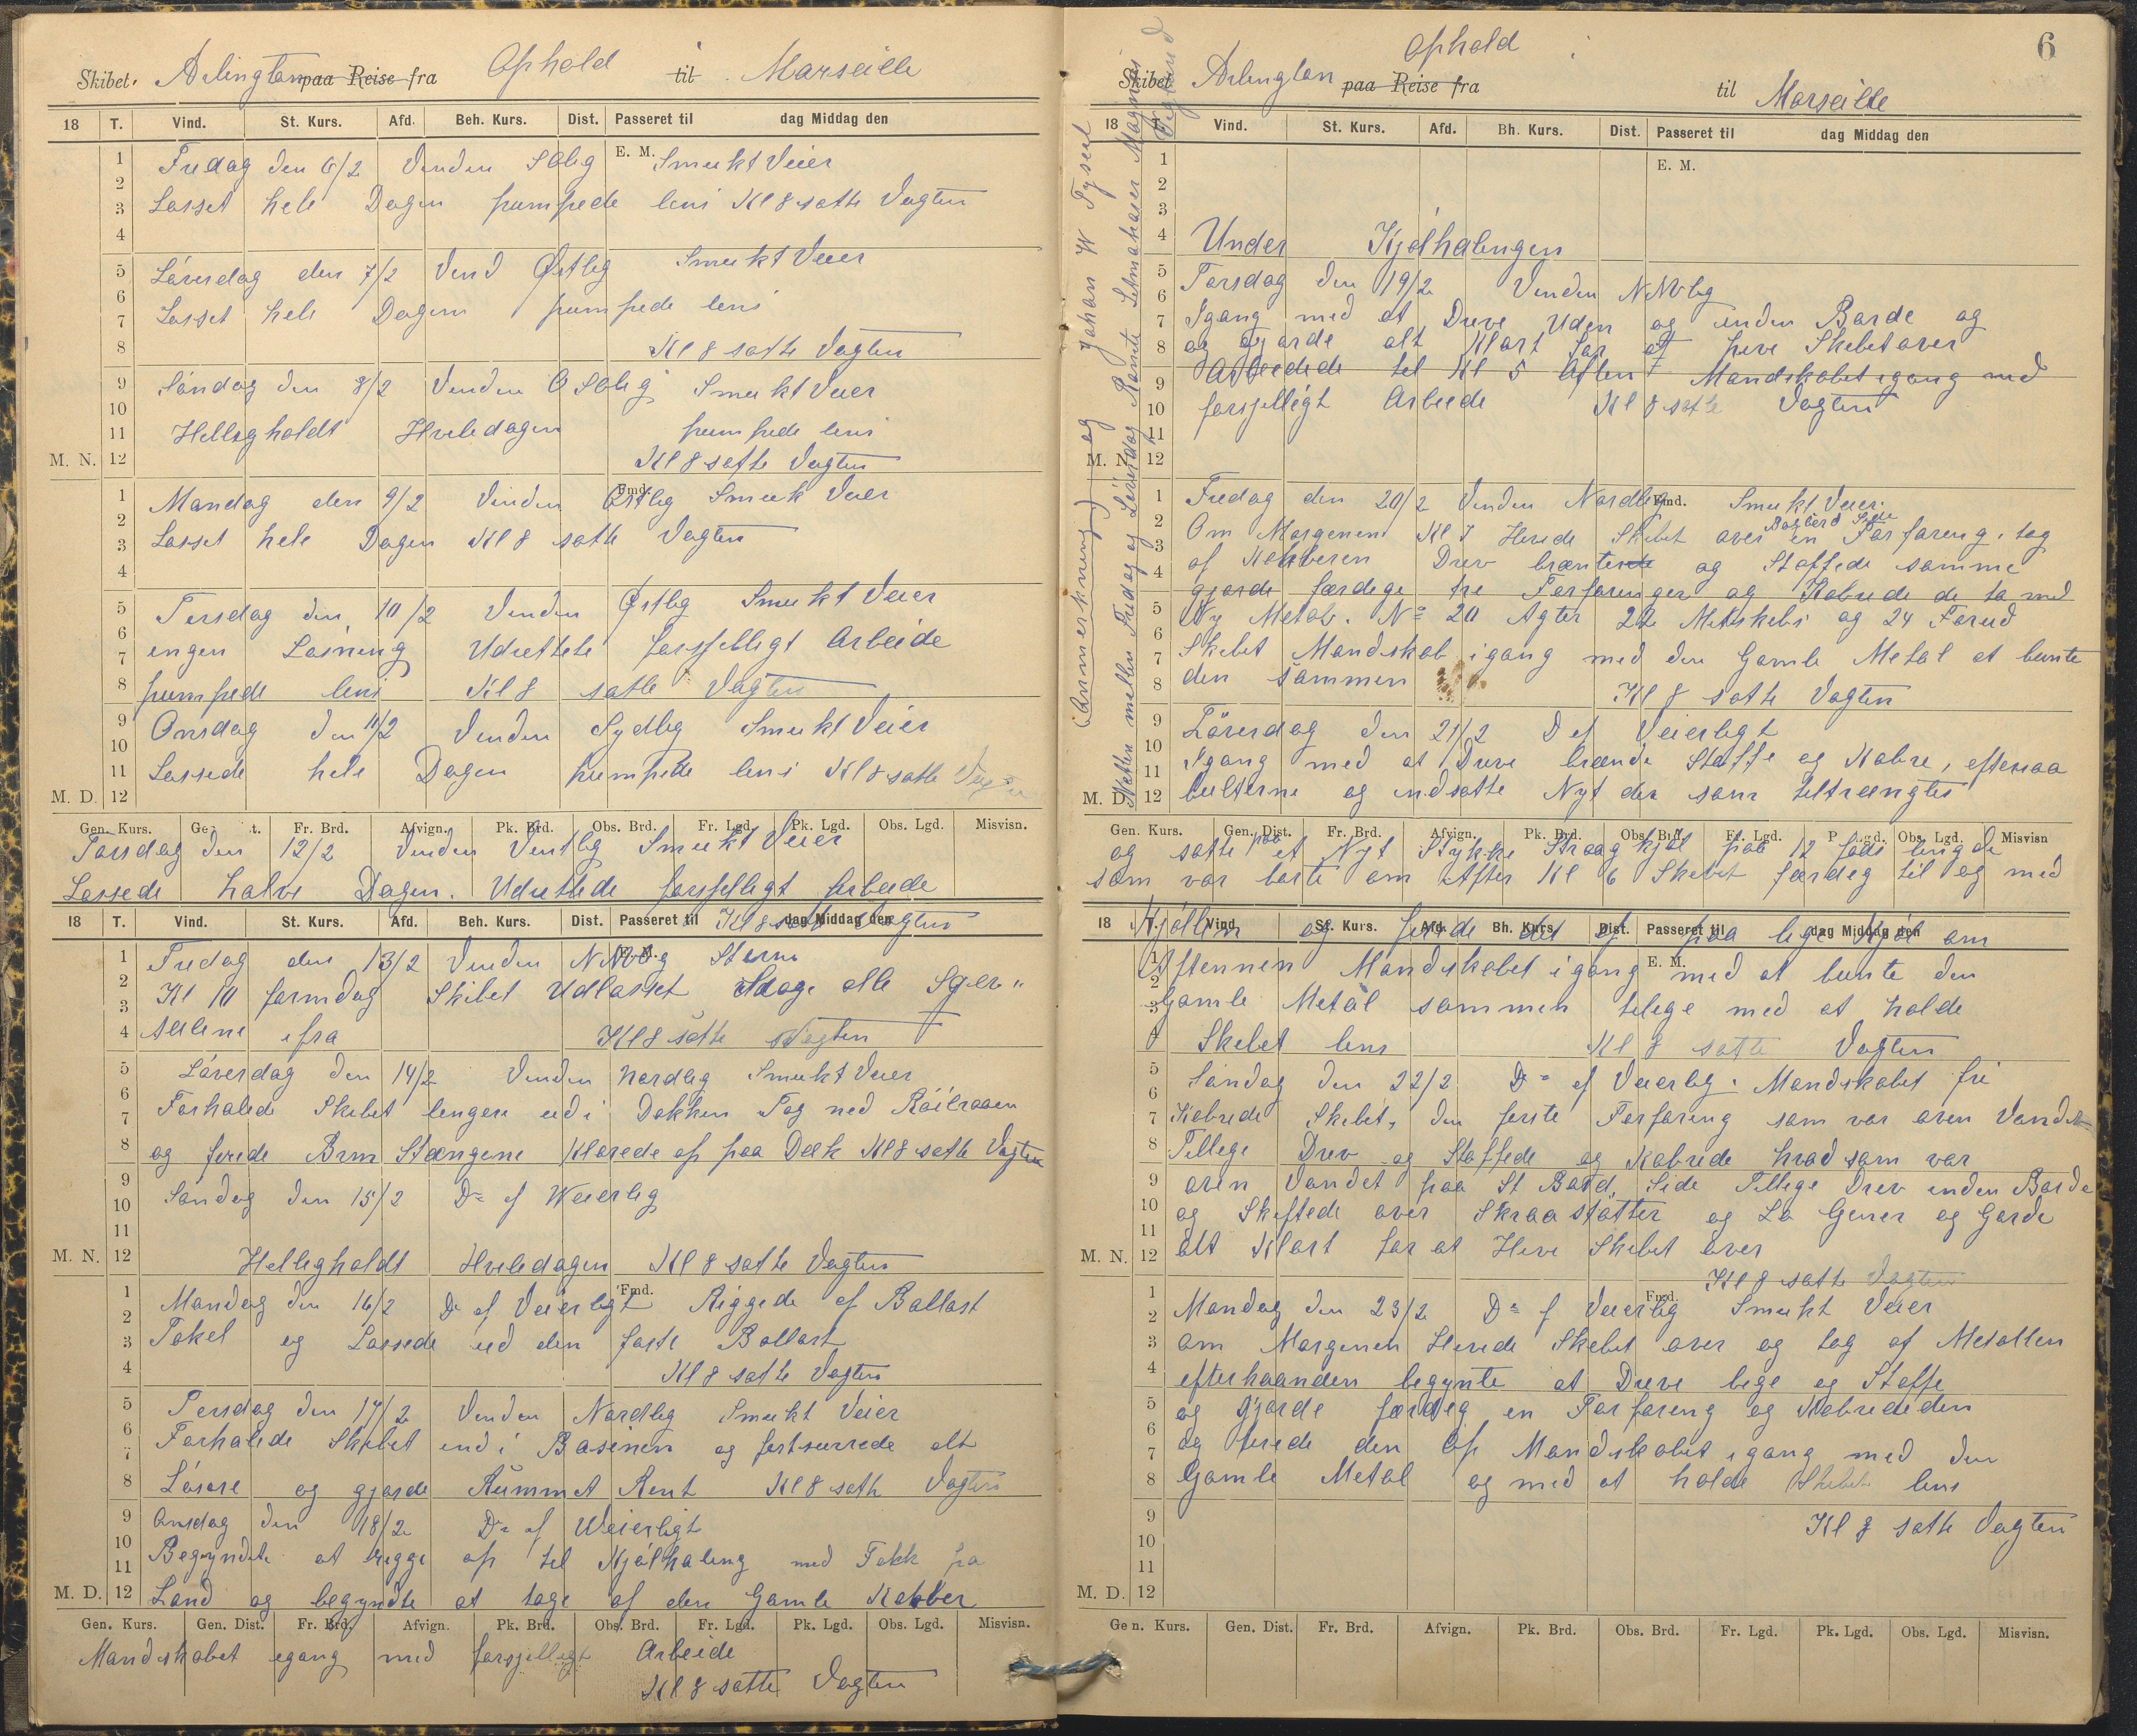 Skibet. Arlington paa Reise fra Ophold til Marseille
18 T. Vind. St. Kurs. Afd. Beh. Kurs. Dist. Passeret til dag Middag den
E. M.
Fredag den 6/2 Vinden SOlig Smukt Veier
Losset hele Dagen pumpede lens Kl 8 satte Vagten
Löverdag den 7/2 Vind Østlig Smukt Veier
Losset hele Dagen pumpede lens
Kl 8 satte Vagten
Söndag den 8/2 Vinden OSOlig Smukt Veier
Helligholdt Hviledagen pumpede lens
M. N. Kl 8 satte Vagten
Fmd.
Mandag den 9/2 Vinden Østlig Smuk Veier
Losset hele Dagen Kl 8 satte Vagten
Tirsdag den 10/2 Vinden Østlig Smukt Veier
ingen Losning Udrettete forsjelligt Arbeide
pumpede lens Kl 8 satte Vagten
Onsdag den 11/2 Vinden Sydlig Smukt Veier
Lossede hele Dagen pumpede lens Kl 8 satte
M. D. 12
Gen. Kurs. Fr. Brd. Afvign. Pk. Brd. Obs. Brd. Fr. Lgd. Pk. Lgd. Obs. Lgd. Misvisn.
Torsdag den 12/2 Vinden Vestlig Smukt Veier
Lossede halve Dagen. Udrettede forsjelligt Arbeide
18 T. Vind. St. Kurs. Afd. Beh. Kurs. Dist. Passeret til dag Middag den
Kl 8 satte Vagten
Fredag den 13/2 Vinden NNVlig Storm
Kl 10 formdag Skibet Udlosset alle
ifra Kl 8 satte Vagten
Löverdag den 14/2 Vinden Nordlig Smukt Veier
Forhalede Skibet lengere ud i Dokken Tog ned
og firede Brm Stængene Klarede op paa Dæk Kl 8 satte Vagten
Söndag den 15/2 Do af Weierlig
M. N. 12 Helligholdt Hviledagen Kl 8 satte Vagten
Fmd.
Mandag den 16/2 Do af Veierligt Riggede af Ballast
Takel og Lossede ud den faste Ballast
Kl 8 satte Vagten
Tirsdag den 17/2 Vinden Nordlig Smukt Veier
Forhalede Skibet ind i Basinen og fastsurrede alt
Lösøre og gjorde Rummet Rent Kl 8 satte Vagten
Onsdag den 18/2 Do af Weierligt
Begyndte at rigge op til Kjölhaling med Folk fra
M. D. 12 Land og begyndte at tage af den Gamle Kobber
Gen. Kurs. Gen. Dist. Fr. Brd. Afvign. Pk. Brd. Obs. Brd. Fr. Lgd. Pk. Lgd. Obs. Lgd. Misvisn.
Mandskabet igang med forsjelligt Arbeide
Kl 8 satte Vagten
6
Skibet Arlington paa Reise fra Ophold i til Marseille
18 T. Vind. St. Kurs. Afd. Bh. Kurs. Dist. Passeret til dag Middag den
E. M.
(Anmerkning) og Johan W Tysert
Natten mellem Fredag og Löverdag Römte Seilmakker Magnus
Under Kjölhalingen
Torsdag den 19/2 Vinden NNVlig
Igang med at Drive Uden og inden Borde og
og gjorde alt Klart for at hive Skibet over
Arbeidede til Kl 5 Aften Mandskabet igang med
forsjelligt Arbeide Kl 8 satte Vagten
M. N. 12
Fmd.
Fredag den 20/2 Vinden Nordlig Smukt Veier
Bagbord Side
Om Morgenen Kl 7 Hivede Skibet over en Forfaring. tog
af Kobberen Drev brænte og Stoffede samme
gjorde færdige tre Forfaringer og Kobrede de to med
Ny Metal. No 20 Agter 22 Mitskibs og 24 Forud
Skibet Mandskab igang med den Gamle Metal at bunte
den sammen Kl 8 satte Vagten
Löverdag den 21/2 Do af Veierligt
Igang med at Drive brænde Stoffe og Kobre, eftersaa
M. D. 12 bulterne og indsatte Nyt der som tiltrængtes
Gen. Kurs. Gen. Dist. Fr. Brd. Afvign. Pk. Brd. Obs. Brd. Fr. Lgd. Obs. Lgd. Misvisn
og satte paa et Nyt Stykke Straag kjöl paa 12 fods lengde
som var borte om Aften Kl 6 Skibet færdig til og med
18 T. Vind. St. Kurs. Afd. Bh. Kurs. Dist. Passeret til dag Middag den
Kjöllen og firede det op paa lige Kjöl om
E. M.
Aftennen Mandskabet igang med at bunte den
Gamle Metal sammen tilige med at holde
Skibet lens Kl 8 satte Vagten
Söndag den 22/2 Do af Veierlig. Mandskabet fri
Kobrede Skibet, den første Forfaring som var oven Vandet
Tillige Drev og Stoffede og Kobrede hvad som var
oven Vandet paa St Bord Side Tillige Drev inden Borde
og Skiftede over Skraastötter og og Gorde
M. N. 12 alt Klart for at Hive Skibet over
Kl 8 satte Vagten
Fmd.
Mandag den 23/2 Do af Veierlig Smukt Veier
om Morgenen Hivede Skibet over og tog af Metallen
efterhaanden begynte at Drive bege og Stoffe
og Gjorde færdig en Forfaring og Kobrede den
og firede den op Mandskabet igang med den
Gamle Metal og med at holde Skibet lens
Kl 8 satte Vagten
M. D. 12
Gen. Kurs. Gen. Dist. Fr. Brd. Afvign. Pk. Brd. Obs. Brd. Fr. Lgd. Pk. Lgd. Obs. Lgd. Misvisn.